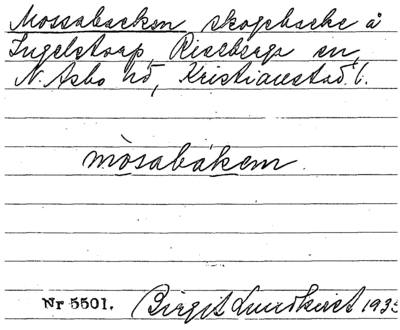 Mossabacken skogsbacke å
Ingelstorp, Riseberga sn,
N. Åsbo hd, Kristianstad l.
mòsabákem.
Nr 5501. Birgit Lundkvist 1935